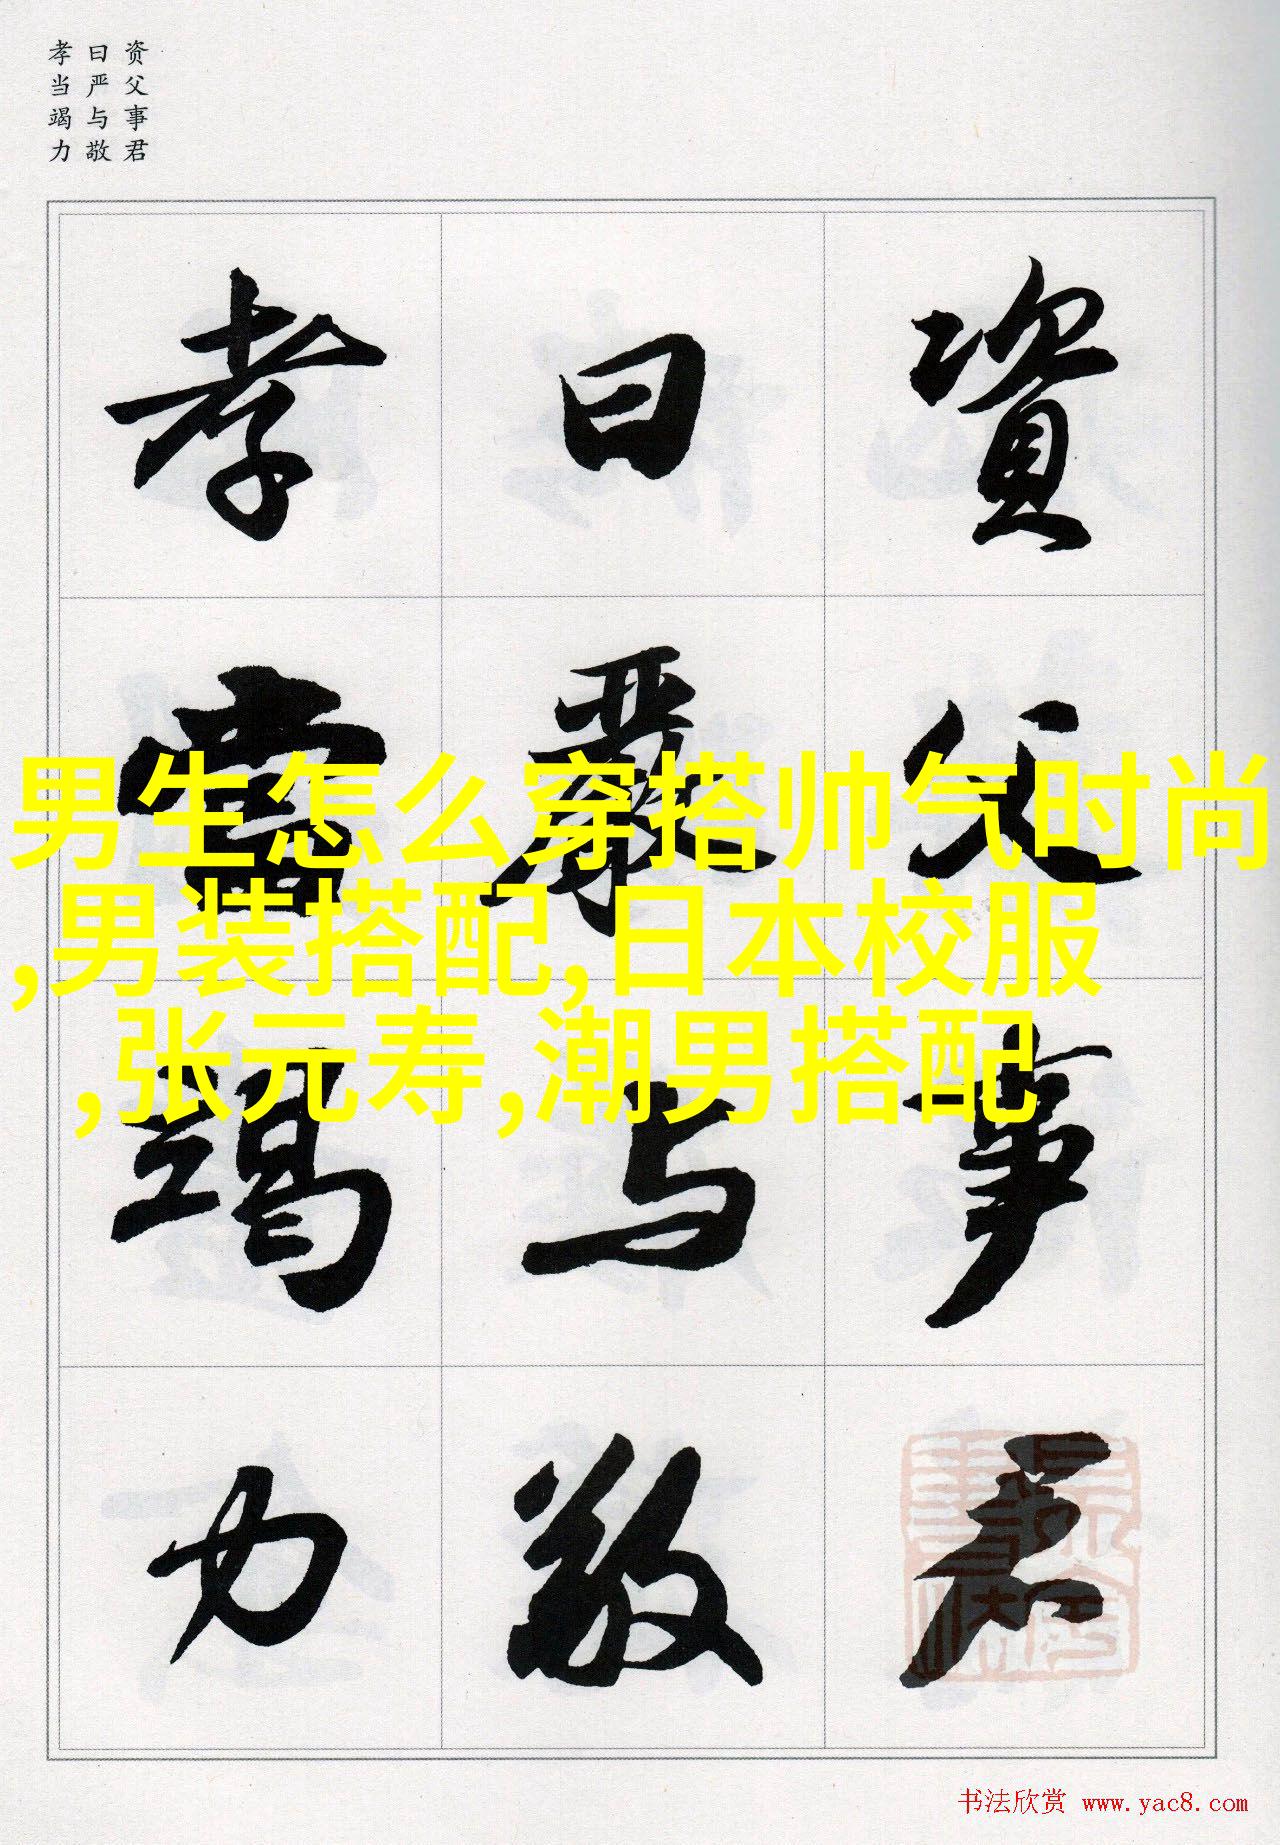 资父事君
曰严与敬
孝当竭力
資父事君
曰嚴与敬
孝當竭力
男生怎么穿搭帅气时尚
,男装搭配,日本校服
,张元寿,潮男搭配
书法欣赏 www.yac8.com